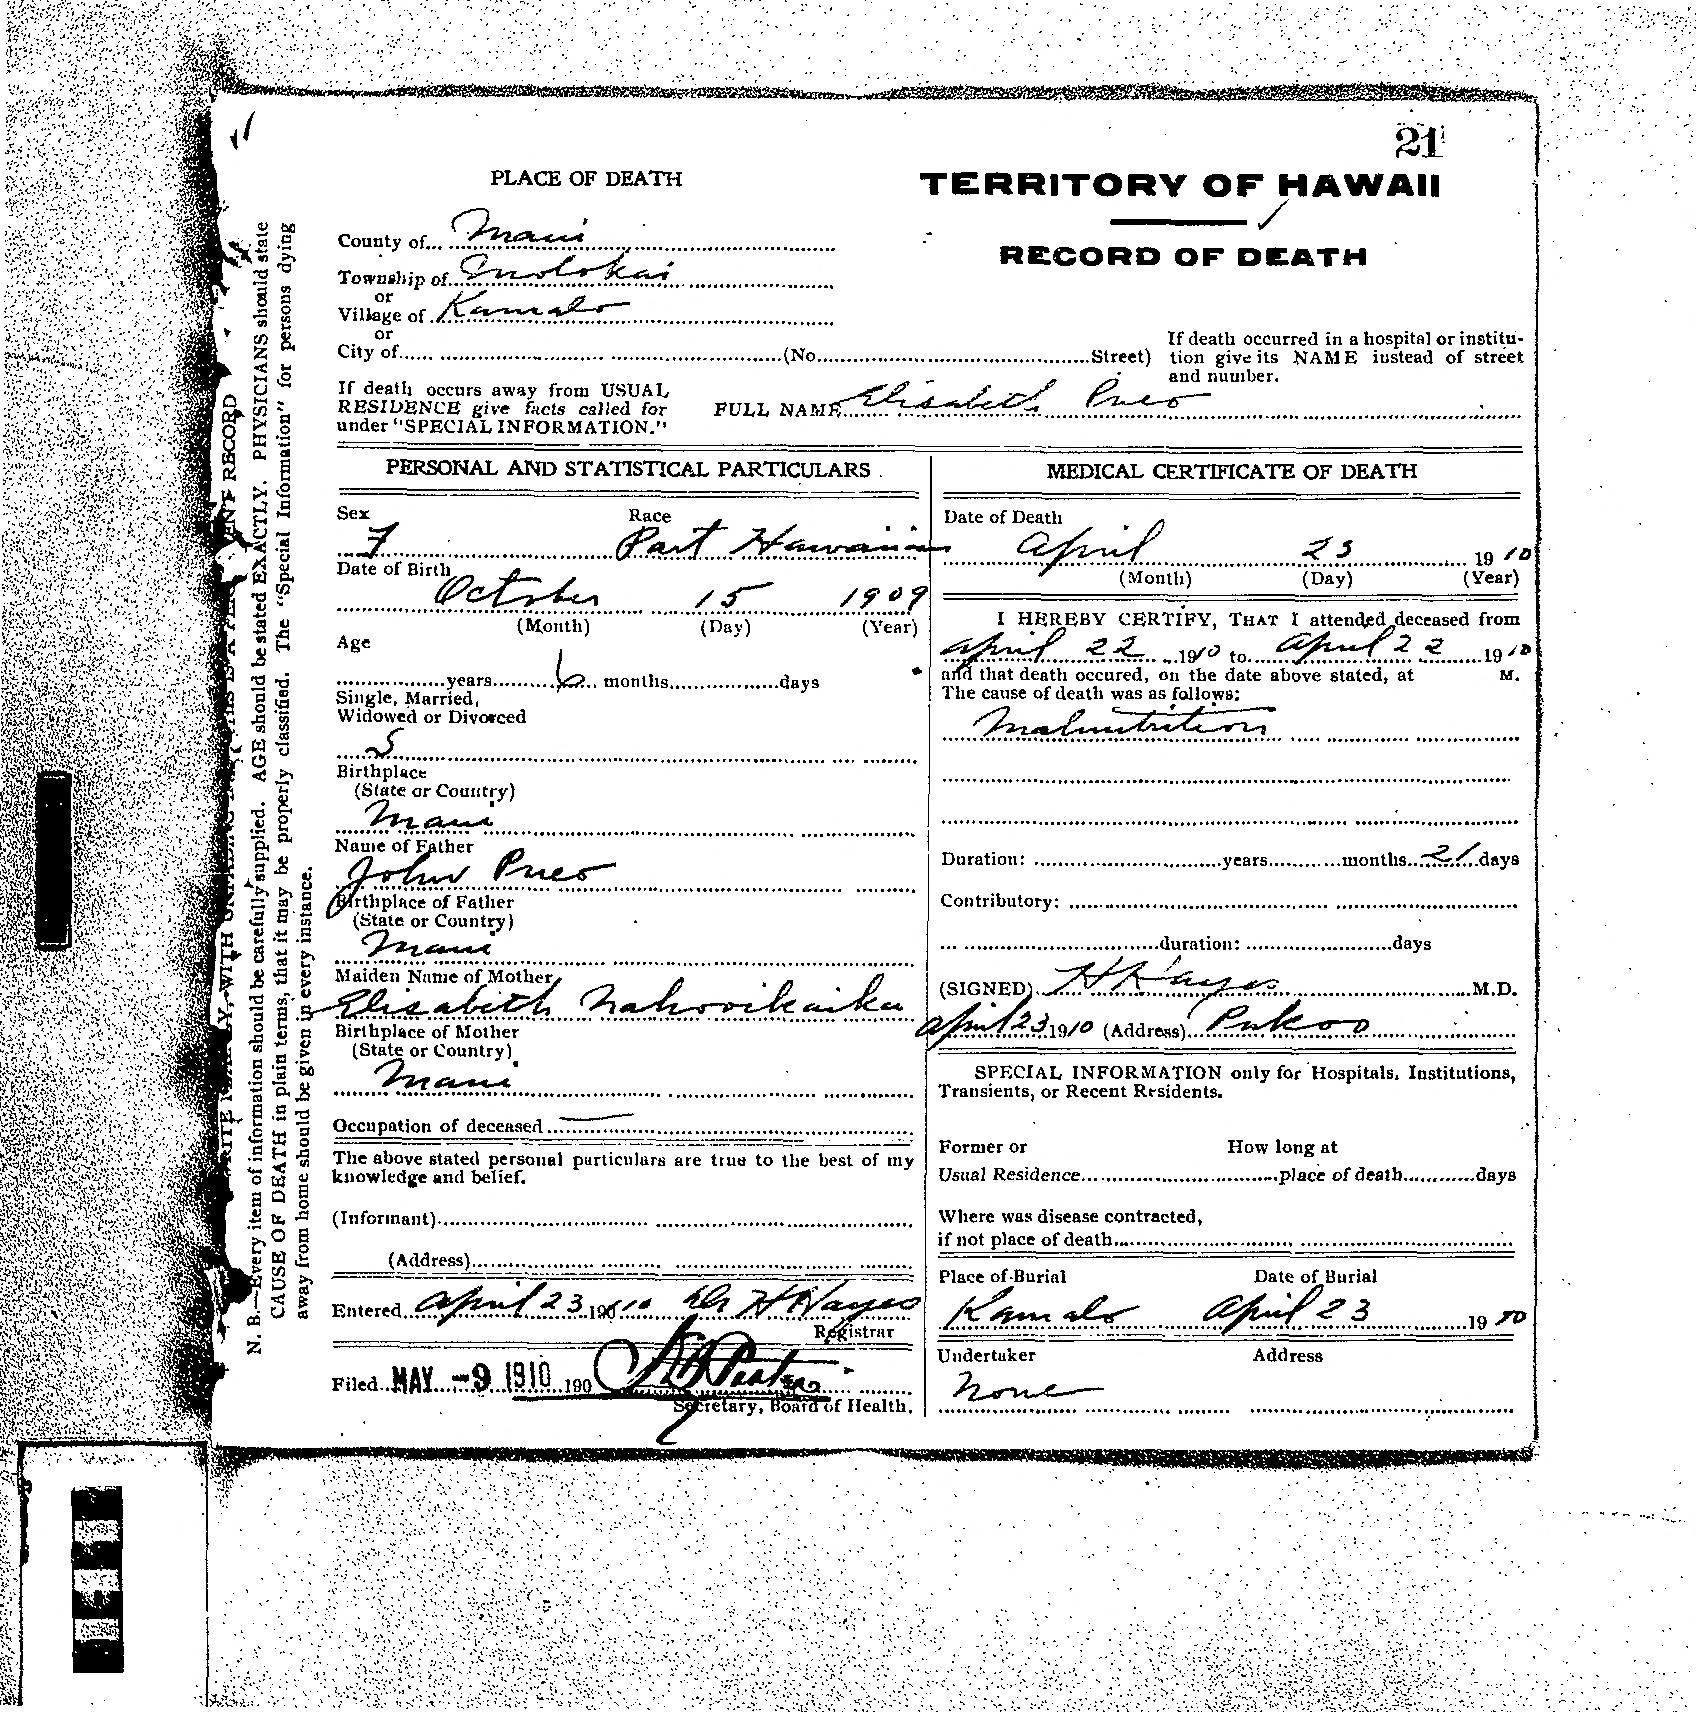 21
PLACE OF DEATH
TERRITORY OF HAWAII
RECORD OF DEATH
County of... Maui
Township of Molokai
or
Village of Kamalo
or
City of (No. Street)
If death occurred in a hospital or institu-
tion give its NAME instead of street
and number.
If death occurs away from USUAL
RESIDENCE give facts called for
under "SPECIAL INFORMATION."
FULL NAME Elisabeth Pueo
PERSONAL AND STATISTICAL PARTICULARS
Sex Race
F Part Hawaiian
Date of Birth
October 15 1909
(Month) (Day) (Year)
Age
years 6 months days
Single, Married,
Widowed or Divorced
S
Birthplace
(State or Country)
Maui
Name of Father
John Pueo
Birthplace of Father
(State or Country)
Maui
Maiden Name of Mother
Elisabeth
Birthplace of Mother
(State or Country)
Maui
Occupation of deceased —
The above stated personal particulars are true to the best of my
knowledge and belief.
(Informant)
(Address)
Entered April 23 190 10 Dr H Hayes
Registrar
Filed MAY -9 1910 190
Secretary, Board of Health.
MEDICAL CERTIFICATE OF DEATH
Date of Death
April 23 1910
(Month) (Day) (Year)
I HEREBY CERTIFY, THAT I attended deceased from
April 22 1910 to April 22 1910
and that death occured, on the date above stated, at M.
The cause of death was as follows:
Malnutrition
Duration: years months 21 days
Contributory:
duration: days
(SIGNED) H Hayes M.D.
April 23 1910 (Address) Pukoo
SPECIAL INFORMATION only for Hospitals, Institutions,
Transients, or Recent Residents.
Former or How long at
Usual Residence place of death days
Where was disease contracted,
if not place of death
Place of Burial Date of Burial
Kamalo April 23 1910
Undertaker Address
None
N. B.—Every item of information should be carefully supplied. AGE should be stated EXACTLY. PHYSICIANS should state
CAUSE OF DEATH in plain terms, that it may be properly classified. The "Special Information" for persons dying
away from home should be given in every instance.